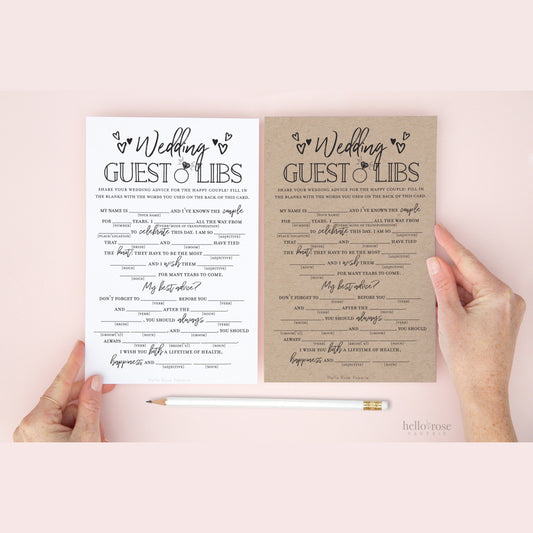 Wedding
GUEST LIBS
SHARE YOUR WEDDING ADVICE FOR THE HAPPY COUPLE! FILL IN
THE BLANKS WITH THE WORDS YOU USED ON THE BACK OF THIS CARD.
MY NAME IS ____ AND I'VE KNOWN THE couple
(YOUR NAME)
FOR ____ YEARS. I ____ ALL THE WAY FROM
(NUMBER) (VERB/MODE OF TRANSPORTATION)
____ TO celebrate THIS DAY. I AM SO ____
(PLACE/LOCATION) (ADJECTIVE)
THAT ____ AND ____ HAVE TIED
(BRIDE) (GROOM)
THE knot! THEY HAVE TO BE THE MOST ____
(ADJECTIVE)
____ AND I wish THEM ____
(NOUN) (ADJECTIVE)
____ FOR MANY YEARS TO COME.
(NOUN)
My best advice?
DON'T FORGET TO ____ BEFORE YOU ____
(VERB) (VERB)
____ AND ____ AFTER THE ____
(NOUN) (VERB)
____. ____ YOU SHOULD always ____
(NOUN) (BRIDE) (VERB)
____ AND ____, YOU SHOULD
(GROOM'S) (NOUN) (GROOM)
ALWAYS ____
(VERB) (BRIDE'S) (NOUN)
I WISH YOU both A LIFETIME OF HEALTH,
happiness AND ____
(ADJECTIVE) (NOUN)
Hello Rose Paperie
Wedding
GUEST LIBS
SHARE YOUR WEDDING ADVICE FOR THE HAPPY COUPLE! FILL IN
THE BLANKS WITH THE WORDS YOU USED ON THE BACK OF THIS CARD.
MY NAME IS ____ AND I'VE KNOWN THE couple
(YOUR NAME)
FOR ____ YEARS. I ____ ALL THE WAY FROM
(NUMBER) (VERB/MODE OF TRANSPORTATION)
____ TO celebrate THIS DAY. I AM SO ____
(PLACE/LOCATION) (ADJECTIVE)
THAT ____ AND ____ HAVE TIED
(BRIDE) (GROOM)
THE knot! THEY HAVE TO BE THE MOST ____
(ADJECTIVE)
____ AND I wish THEM ____
(NOUN) (ADJECTIVE)
____ FOR MANY YEARS TO COME.
(NOUN)
My best advice?
DON'T FORGET TO ____ BEFORE YOU ____
(VERB) (VERB)
____ AND ____ AFTER THE ____
(NOUN) (VERB)
____. ____ YOU SHOULD always ____
(NOUN) (BRIDE) (VERB)
____ AND ____, YOU SHOULD
(GROOM'S) (NOUN) (GROOM)
ALWAYS ____
(VERB) (BRIDE'S) (NOUN)
I WISH YOU both A LIFETIME OF HEALTH,
happiness AND ____
(ADJECTIVE) (NOUN)
hello rose
PAPERIE